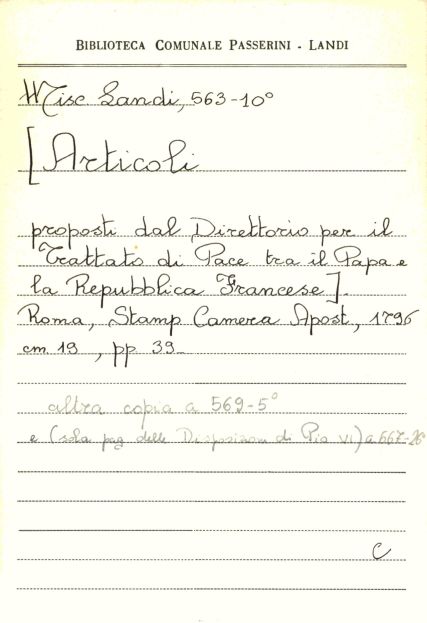 BIBLIOTECA COMUNALE PASSERINI - LANDI
Misc. Landi, 563-10°
[Articoli
proposti dal Direttorio per il
Trattato di Pace tra il Papa e
la Repubblica Francese].
Roma, Stamp Camera Apost, 1796
cm. 19, pp 39
altra copia a 569-5°
e (sola pag delle Disposizioni di Pio VI) a 667-26
C